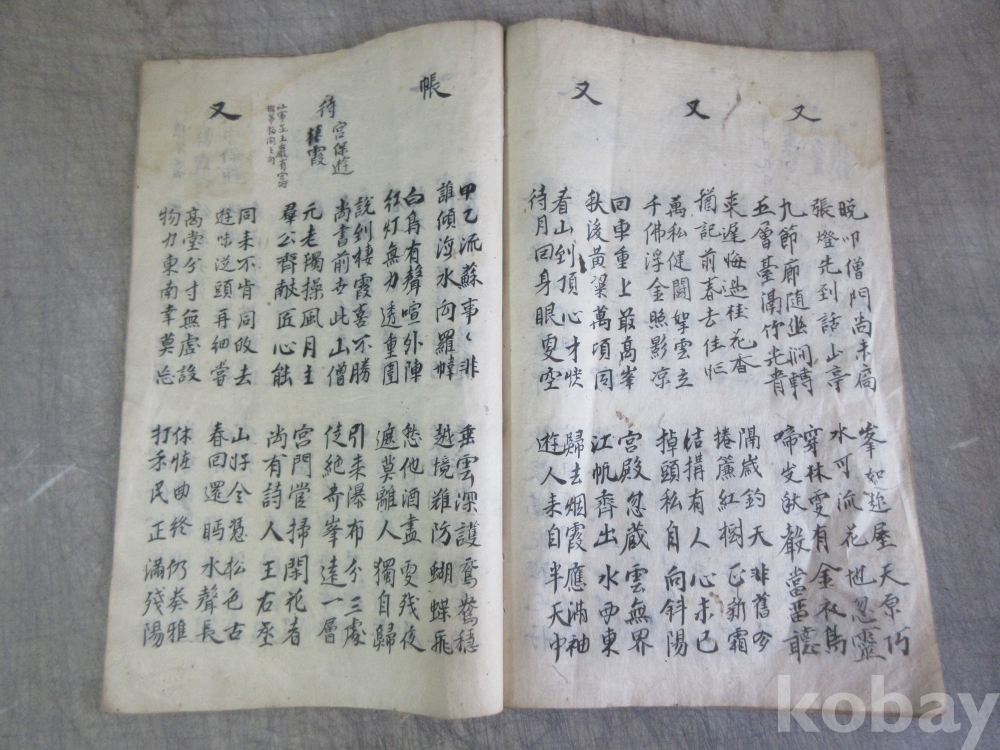 又
晩叩僧門尚未扃
張燈先到話山亭
九節廊隨幽澗轉
五層臺滿竹光青
峯如起屋天原巧
水可流花地忽靈
穿林更有金衣鳥
啼出秋聲當晝聽
又
來遲悔過桂花香
猶記前春去住忙
萬私健闘拏雲立
千佛浮金照影凉
隔歲鈞天非舊吟
捲簾紅樹正新霜
佶搆有人心未已
掉頭私自向斜陽
又
回車重上最高峯
秋後黃粱萬頃同
看山到頂心才快
待月回身眼更空
宮殿忽藏雲無界
江帆齊出水西東
歸去烟霞應滿袖
遊人未自半天中
帳
甲乙流蘇事々非
誰傾海水向羅幃
白鳥有聲喧外陣
紅灯無力透重圍
垂雲深護鴛鴦穩
越境難防蝴蝶飛
愁他酒盡更殘夜
遮莫離人獨自歸
待宮保遊棲霞
說到棲霞喜不勝
尚書前世此山僧
元老獨操風月主
羣公齊献匠心能
引來瀑布分三處
徒絕奇峯遠一層
宮門當掃閑花者
尚有詩人王右丞
又
同來不肯同收去
遊味從頭再細嘗
高堂分寸無虛設
物力東南幸莫忘
山好全憑松色古
春回還 水聲長
休怪曲終仍奏雅
打禾民正滿殘陽
kobay